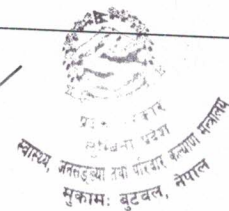 प्रदेश
स्वास्थ्य, जनसङ्ख्या तथा परिवार कल्याण मन्त्रालय
मुकाम: बुटवल, नेपाल